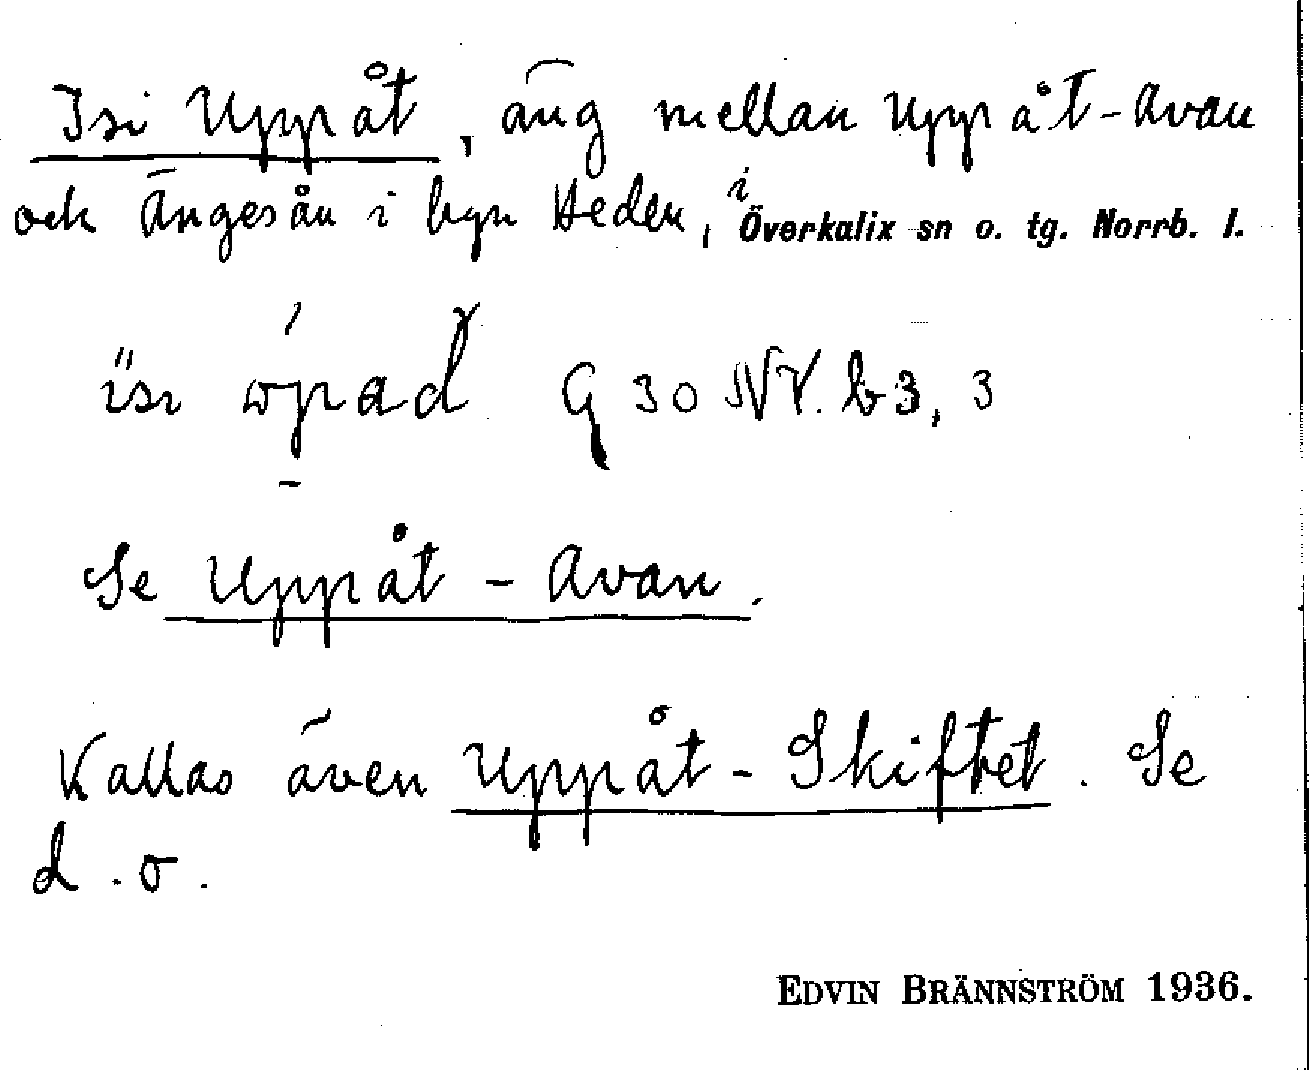 Isi Uppåt, äng mellan Uppåt-Avan
och Ängesån i byn Heden, i Överkalix sn o. tg. Norrb. l.
G 30 NV. b 3, 3
Se Uppåt - Avan.
Kallas även Uppåt - Skiftet. Se
d. o.
EDVIN BRÄNNSTRÖM 1936.